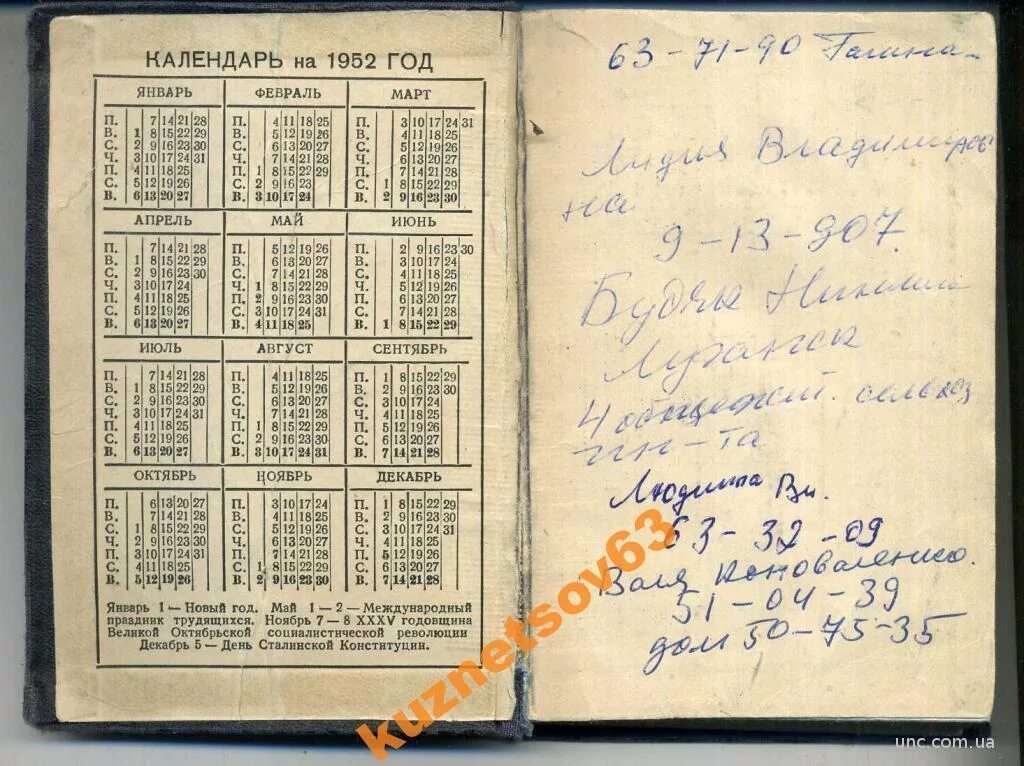 КАЛЕНДАРЬ на 1952 ГОД
ЯНВАРЬ ФЕВРАЛЬ МАРТ
П. 7 14 21 28 П. 4 11 18 25 П. 3 10 17 24 31
В. 1 8 15 22 29 В. 5 12 19 26 В. 4 11 18 25
С. 2 9 16 23 30 С. 6 13 20 27 С. 5 12 19 26
Ч. 3 10 17 24 31 Ч. 7 14 21 28 Ч. 6 13 20 27
П. 4 11 18 25 П. 1 8 15 22 29 П. 7 14 21 28
С. 5 12 19 26 С. 2 9 16 23 С. 1 8 15 22 29
В. 6 13 20 27 В. 3 10 17 24 В. 2 9 16 23 30
АПРЕЛЬ МАЙ ИЮНЬ
П. 7 14 21 28 П. 5 12 19 26 П. 2 9 16 23 30
В. 1 8 15 22 29 В. 6 13 20 27 В. 3 10 17 24
С. 2 9 16 23 30 С. 7 14 21 28 С. 4 11 18 25
Ч. 3 10 17 24 Ч. 1 8 15 22 29 Ч. 5 12 19 26
П. 4 11 18 25 П. 2 9 16 23 30 П. 6 13 20 27
С. 5 12 19 26 С. 3 10 17 24 31 С. 7 14 21 28
В. 6 13 20 27 В. 4 11 18 25 В. 1 8 15 22 29
ИЮЛЬ АВГУСТ СЕНТЯБРЬ
П. 7 14 21 28 П. 4 11 18 25 П. 1 8 15 22 29
В. 1 8 15 22 29 В. 5 12 19 26 В. 2 9 16 23 30
С. 2 9 16 23 30 С. 6 13 20 27 С. 3 10 17 24
Ч. 3 10 17 24 31 Ч. 7 14 21 28 Ч. 4 11 18 25
П. 4 11 18 25 П. 1 8 15 22 29 П. 5 12 19 26
С. 5 12 19 26 С. 2 9 16 23 30 С. 6 13 20 27
В. 6 13 20 27 В. 3 10 17 24 31 В. 7 14 21 28
ОКТЯБРЬ НОЯБРЬ ДЕКАБРЬ
П. 6 13 20 27 П. 3 10 17 24 П. 1 8 15 22 29
В. 7 14 21 28 В. 4 11 18 25 В. 2 9 16 23 30
С. 1 8 15 22 29 С. 5 12 19 26 С. 3 10 17 24 31
Ч. 2 9 16 23 30 Ч. 6 13 20 27 Ч. 4 11 18 25
П. 3 10 17 24 31 П. 7 14 21 28 П. 5 12 19 26
С. 4 11 18 25 С. 1 8 15 22 29 С. 6 13 20 27
В. 5 12 19 26 В. 2 9 16 23 30 В. 7 14 21 28
Январь 1 — Новый год. Май 1 — 2 — Международный
праздник трудящихся. Ноябрь 7 — 8 XXXV годовщина
Великой Октябрьской социалистической революции
Декабрь 5 — День Сталинской Конституции.
63-71-90 Галина
Лидия Владимиров
на
9-13-907.
Луганск
4 общежит. сельхоз
ин-та
Людмила Вл.
63-32-09
Валя Коноваленко.
51-04-39
дом 50-75-35
kuznetsov63
unc.com.ua